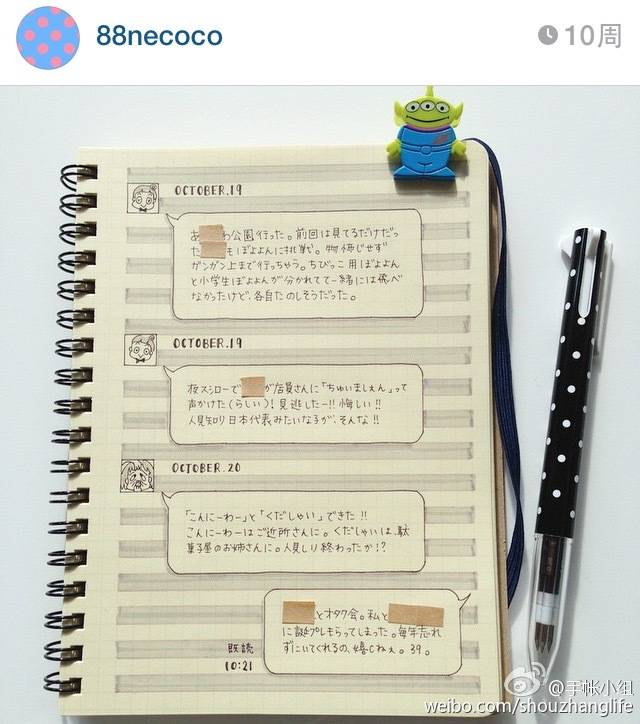 88necoco
10周
OCTOBER.19
あ わ公園行った。前回は見てるだけだっ
た も ぼよよんに挑戦。物怖じせず
ガンガン上まで行っちゃう。ちびっこ用ぼよよん
と小学生ぼよよんが分かれてて一緒には飛べ
なかったけど、各自たのしそうだった。
OCTOBER.19
桜スシローで が店員さんに「ちゅいましぇん」って
声かけた(らしい)!見逃したー!!悔しい!!
人見知り日本代表みたいな子が、そんな!!
OCTOBER.20
「こんにーわー」と「くだしゃい」できた!!
こんにーわーはご近所さんに。くだしゃいは、駄
菓子屋のお姉さんに。人見しり終わったか!?
とオタク会。私と
に誕プレもらってしまった。毎年忘れ
ずにいてくれるの、嬉しねぇ。39。
既読
10:21
@手帐小组
weibo.com/shouzhanglife